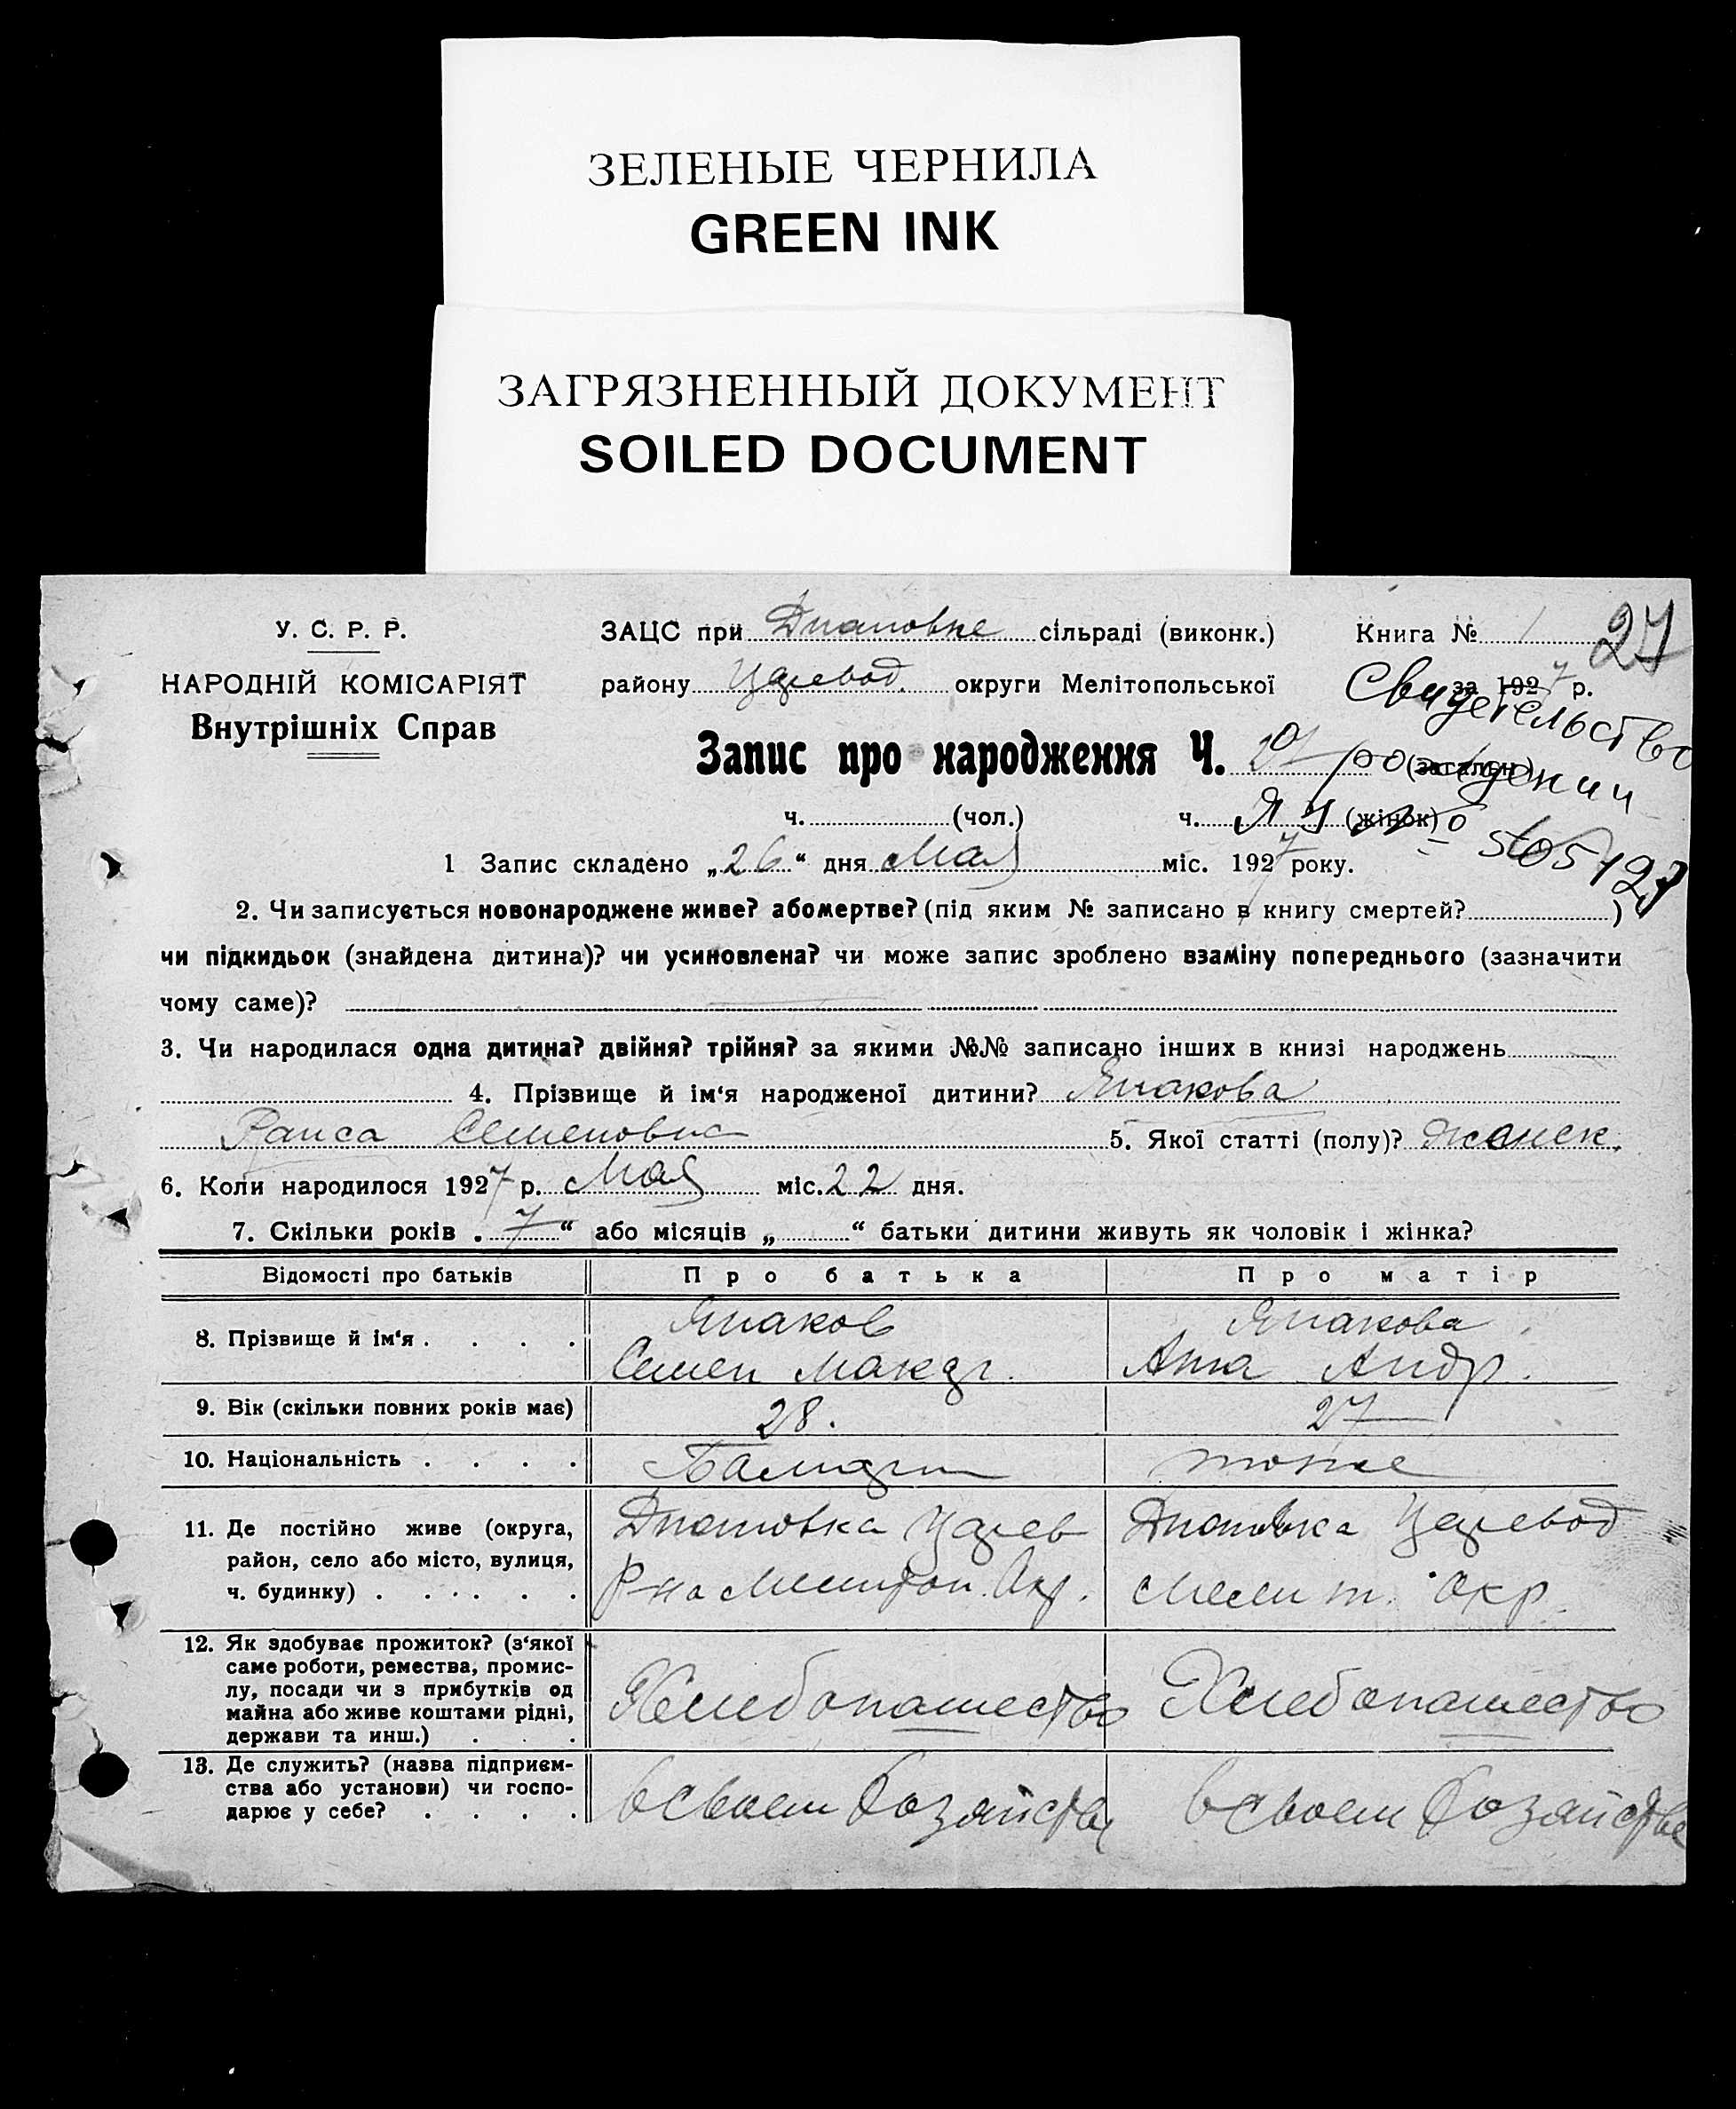 ЗЕЛЕНЫЕ ЧЕРНИЛА
GREEN INK
ЗАГРЯЗНЕННЫЙ ДОКУМЕНТ
SOILED DOCUMENT
У. С. Р. Р.
НАРОДНІЙ КОМІСАРІЯТ
Внутрішніх Справ
ЗАЦС при сільраді (виконк.)
району округи Мелітопольської
Книга № 1 27
за 1927 р.
Свидетельство
Запис про народження Ч. (загальн.)
рождении
ч. (чол.) ч. (жінок)
1 Запис складено „26“ дня Мая міс. 1927 року.
2. Чи записується новонароджене живе? або мертве? (під яким № записано в книгу смертей? )
чи підкидьок (знайдена дитина)? чи усиновлена? чи може запис зроблено взаміну попереднього (зазначити
чому саме)?
3. Чи народилася одна дитина? двійня? трійня? за якими №№ записано інших в книзі народжень
4. Прізвище й ім‘я народженої дитини?
Раиса Семеновна 5. Якої статті (полу)? женск.
6. Коли народилося 1927 р. Мая міс. 22 дня.
7. Скільки років „7“ або місяців „ “ батьки дитини живуть як чоловік і жінка?
Відомості про батьків Про батька Про матір
8. Прізвище й ім‘я
Семен Анна Андр.
9. Вік (скільки повних років має) 28. 27
10. Національність тоже
11. Де постійно живе (округа,
район, село або місто, вулиця,
ч. будинку)
Р-на Мелитоп. Окр. Мелит. Окр.
12. Як здобуває прожиток? (з‘якої
саме роботи, ремества, промис-
лу, посади чи з прибутків од
майна або живе коштами рідні,
держави та инш.)
Хлебопашество Хлебопашество
13. Де служить? (назва підприєм-
ства або установи) чи госпо-
дарює у себе?
в своем хозяйстве в своем хозяйстве